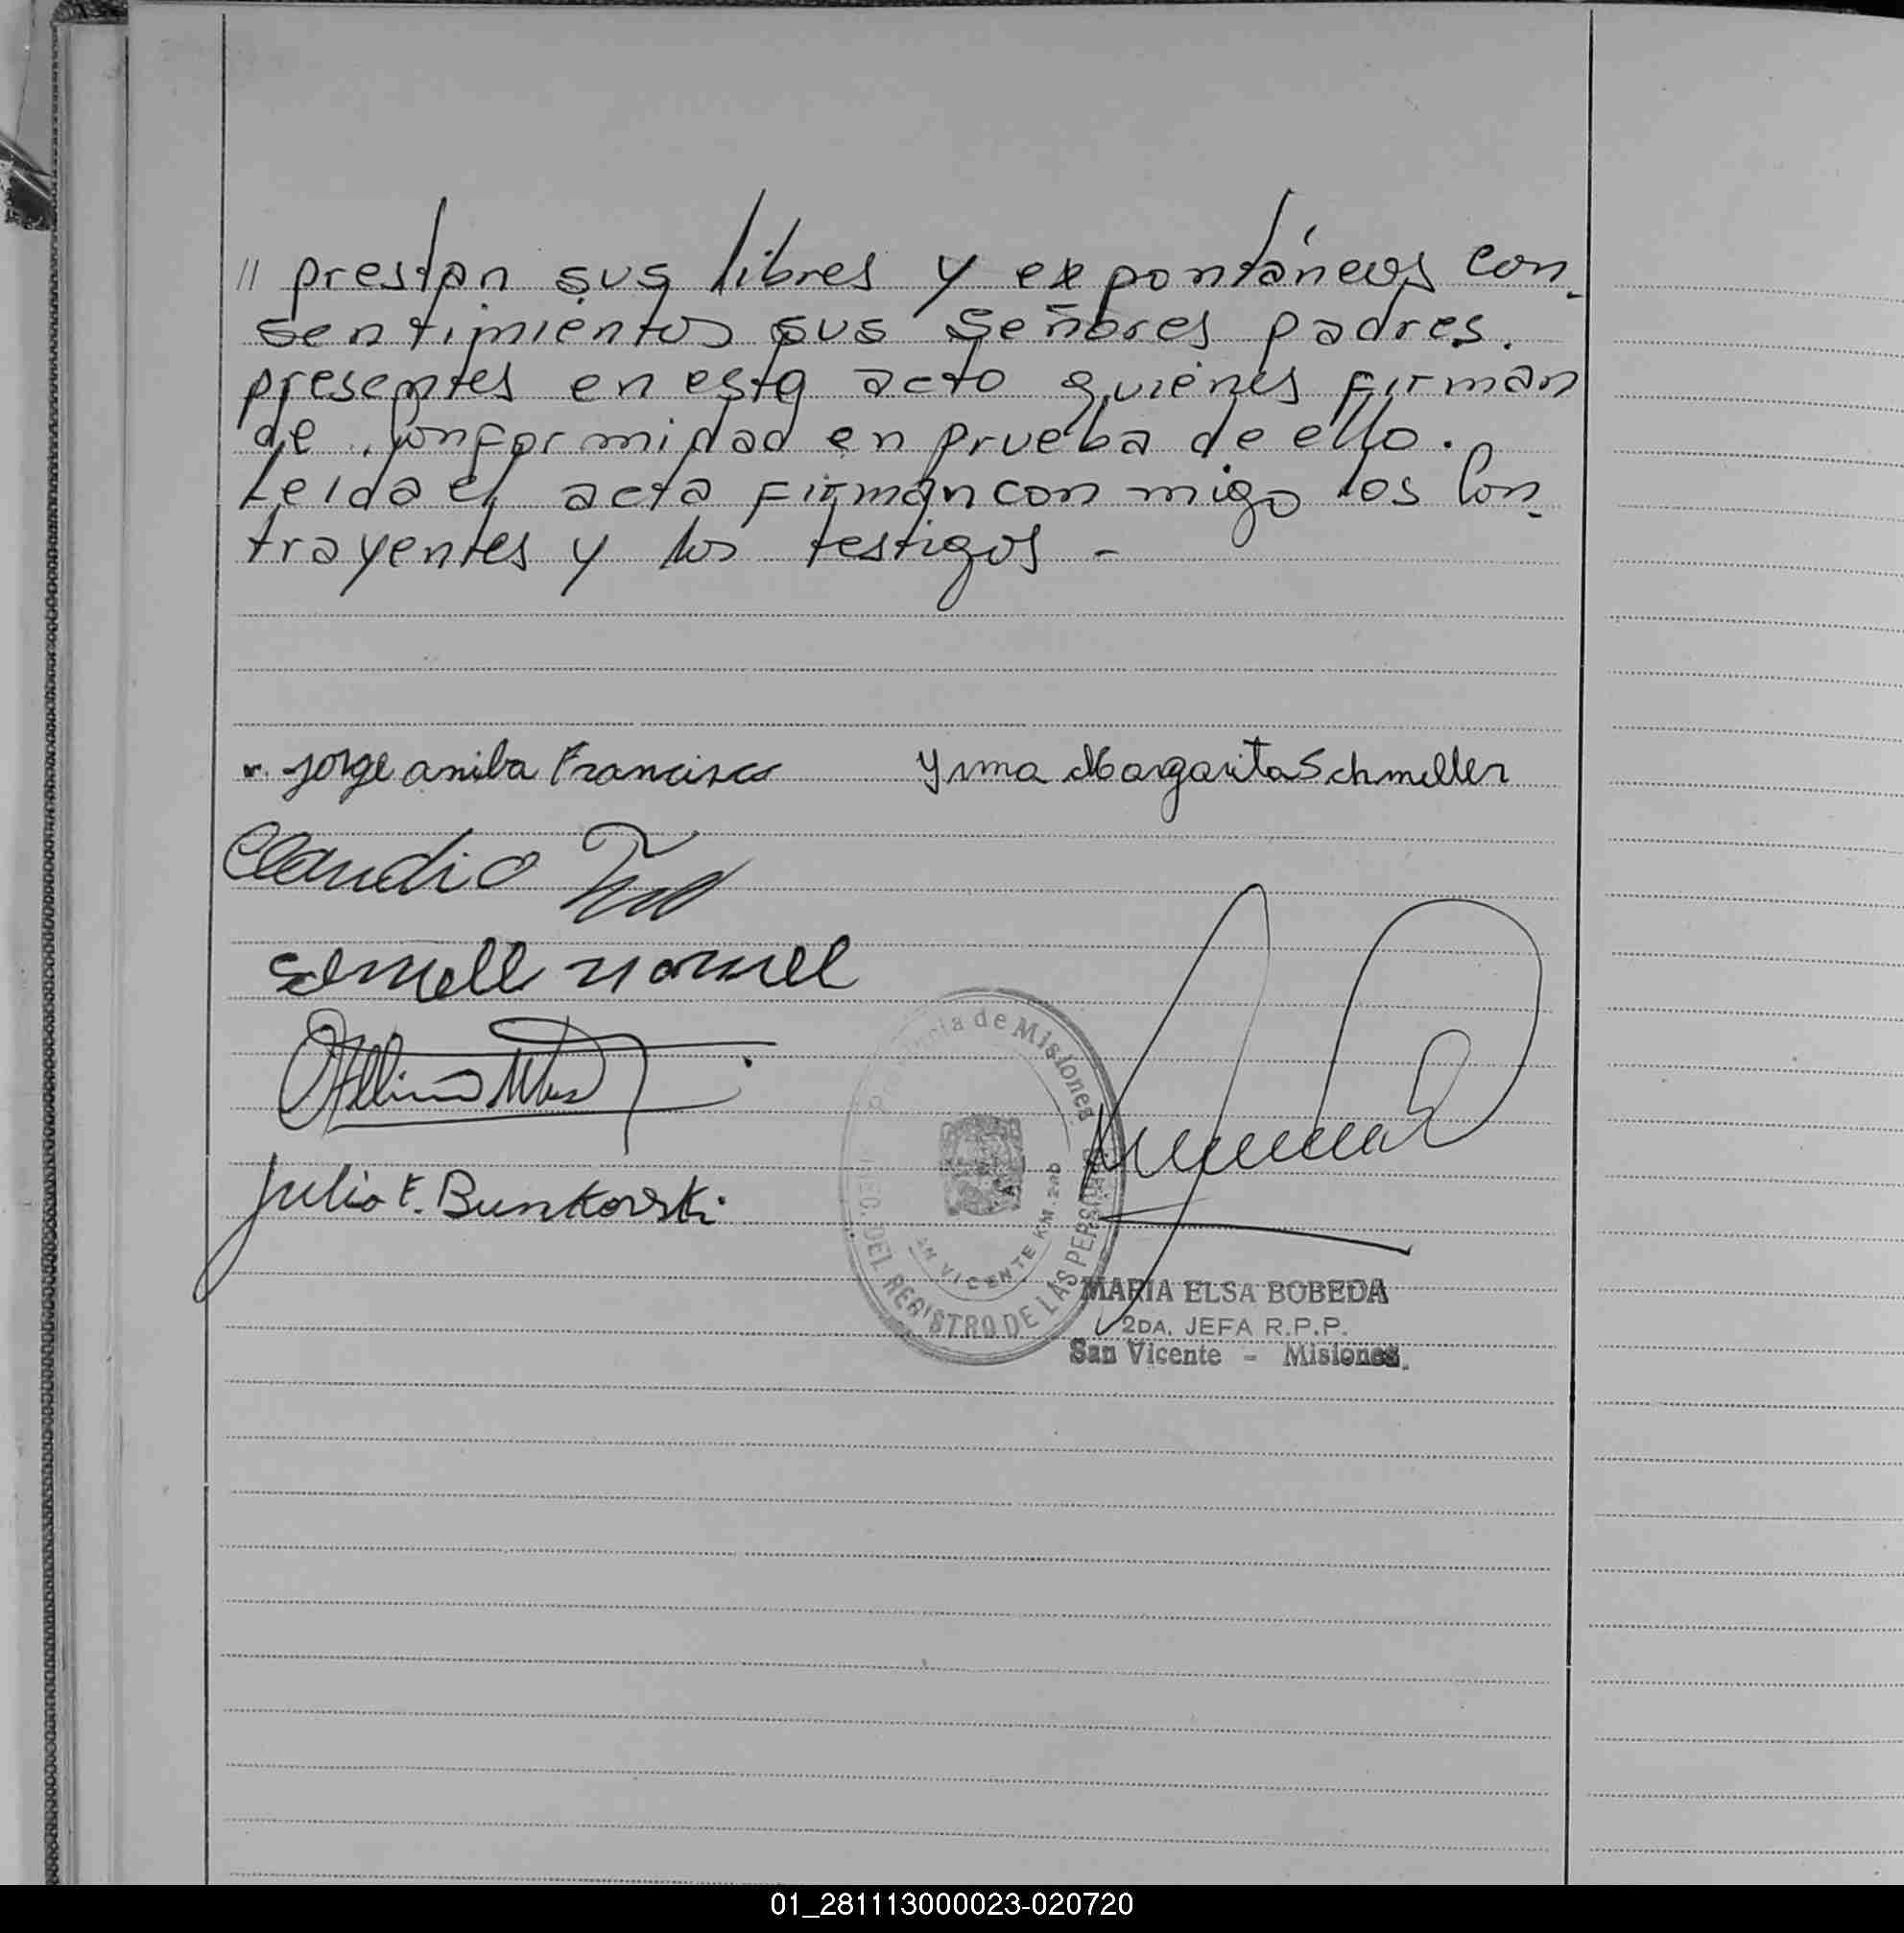 // prestan sus libres y expontáneos con-
sentimientos sus Señores padres.
presentes en esta acto quienes firman
de conformidad en prueba de ello.
Leida el acta firman con migo los Con-
trayentes y los testigos -
Jorge aniba Francisco Yrma Margarita Schmeller
Claudio
Julio E. Bunkowski
Provincia de Misiones
DEL REGISTRO DE LAS PERSONAS
SAN VICENTE KM.
MARIA ELSA BOBEDA
2DA. JEFA R.P.P.
San Vicente - Misiones.
01_281113000023-020720